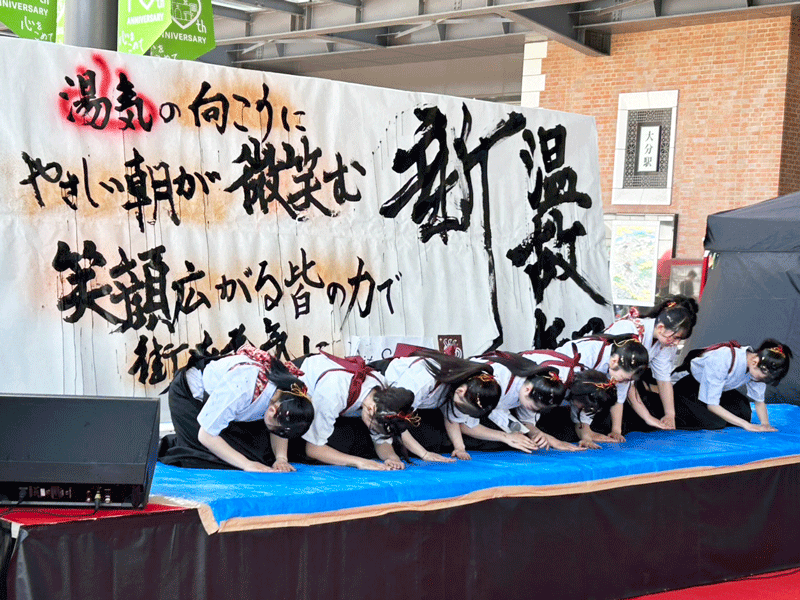 ANNIVERSARY
10th
ANNIVERSARY
th
ANNIVERSARY
温故
新
湯気の向こうに
やさしい朝が微笑む
笑顔広がる皆の力で
街を元気に
大分駅